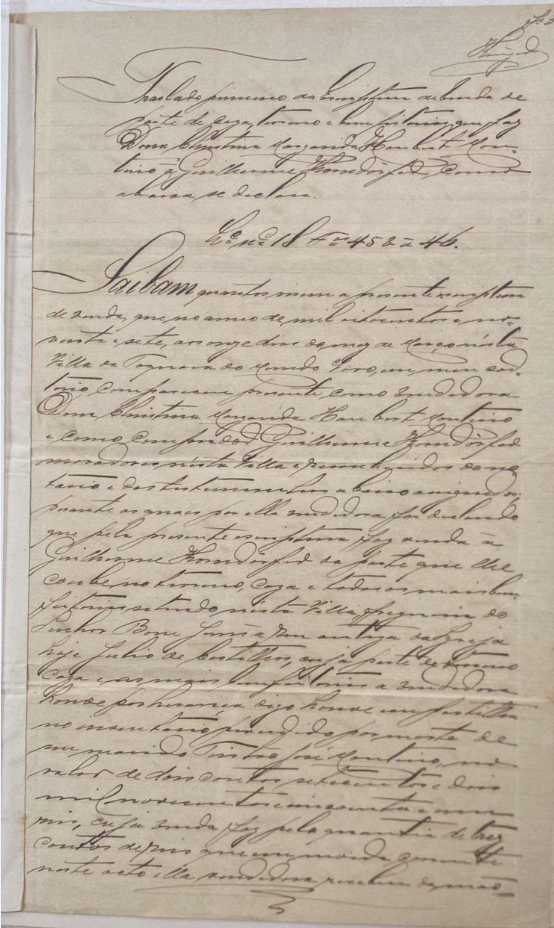 Traslado primeiro da Escriptura de venda de
parte de caza, terreno e bemfeitorias, que faz
Dona Christina Margarida Haubert Mon-
teiro á Guilherme Korndörfer, como
abaixo se declara.
Lº nº 18 Fˢ 45 á 46.
Saibam quantos virem a presente escriptura
de venda, que no anno de mil oitocentos e no-
venta e sete, aos onze dias do mez de Março, nesta
Villa de Taquara do Mundo Novo, em meu car-
torio, compareceu presente, como vendedora
Dona Christina Margarida Haubert Monteiro
e como comprador Guilherme Korndörfer
moradores nesta Villa e reconhecidos do no-
tario e das testemunhas abaixo assignadas,
perante as quaes por ella vendedora foi declarado
que pela presente escriptura faz venda á
Guilherme Korndörfer da parte que lhe
coube, no terreno, caza e todas as mais bem-
feitorias, sito nesta Villa, freguezia do
Senhor Bom Jesus, a Rua antiga da Igreja
hoje Julio de Castilhos, cuja parte de terreno
caza e as mais bemfeitorias a vendedora
houve por herança digo houve em partilha
no inventario procedido por morte de
seu marido Tristão José Monteiro, no
valor de dois contos setecentos e dois
mil novecentos e cincoenta e um
reis, cuja venda faz pela quantia de trez
contos de reis que em moeda corrente
neste acto ella vendedora recebeu da mão